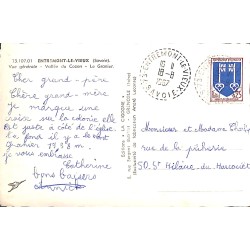 13.107.01 ENTREMONT-LE-VIEUX (Savoie)
Vue générale - Vallée du Cozon - Le Granier
Cher grand-père
Chère grand-mère
je marque une
croix sur la colonie elle
est juste à côté de l'église
au fond il y a le mont
Granier 1938 m
je vous embrasse
Catherine
bons baisers
Editions " LA CIGOGNE "
ENTREMONT-LE-VIEUX
SAVOIE
18-8
1967
Monsieur et Madame
rue de la
50. St Hilaire du Harcouët